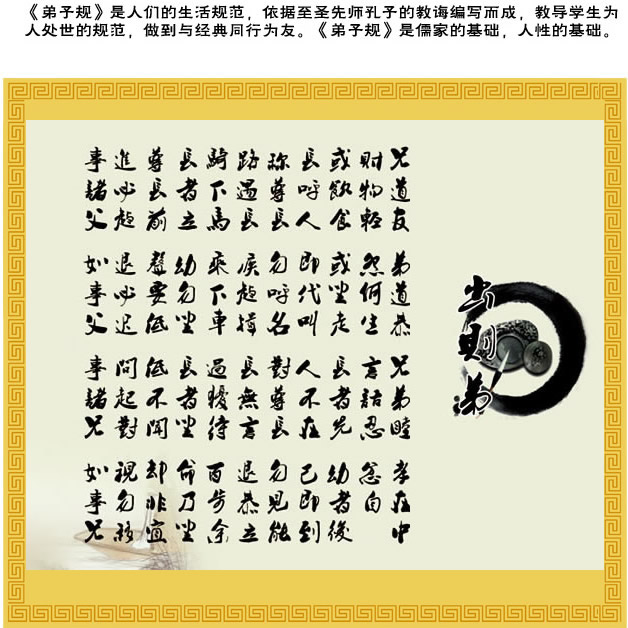 《弟子规》是人们的生活规范，依据至圣先师孔子的教诲编写而成，教导学生为
人处世的规范，做到与经典同行为友。《弟子规》是儒家的基础，人性的基础。
出則弟
兄道友 弟道恭 兄弟睦 孝在中
財物輕 怨何生 言語忍 忿自
或飲食 或坐走 長者先 幼者後
長呼人 即代叫 人不在 己即到
称尊長 勿呼名 對尊長 勿見能
路遇長 疾趨揖 長無言 退恭立
騎下馬 乘下車 過猶待 百步余
長者立 幼勿坐 長者坐 命乃坐
尊長前 聲要低 低不聞 却非宜
進必趨 退必迟 問起對 視勿移
事諸父 如事父 事諸兄 如事兄